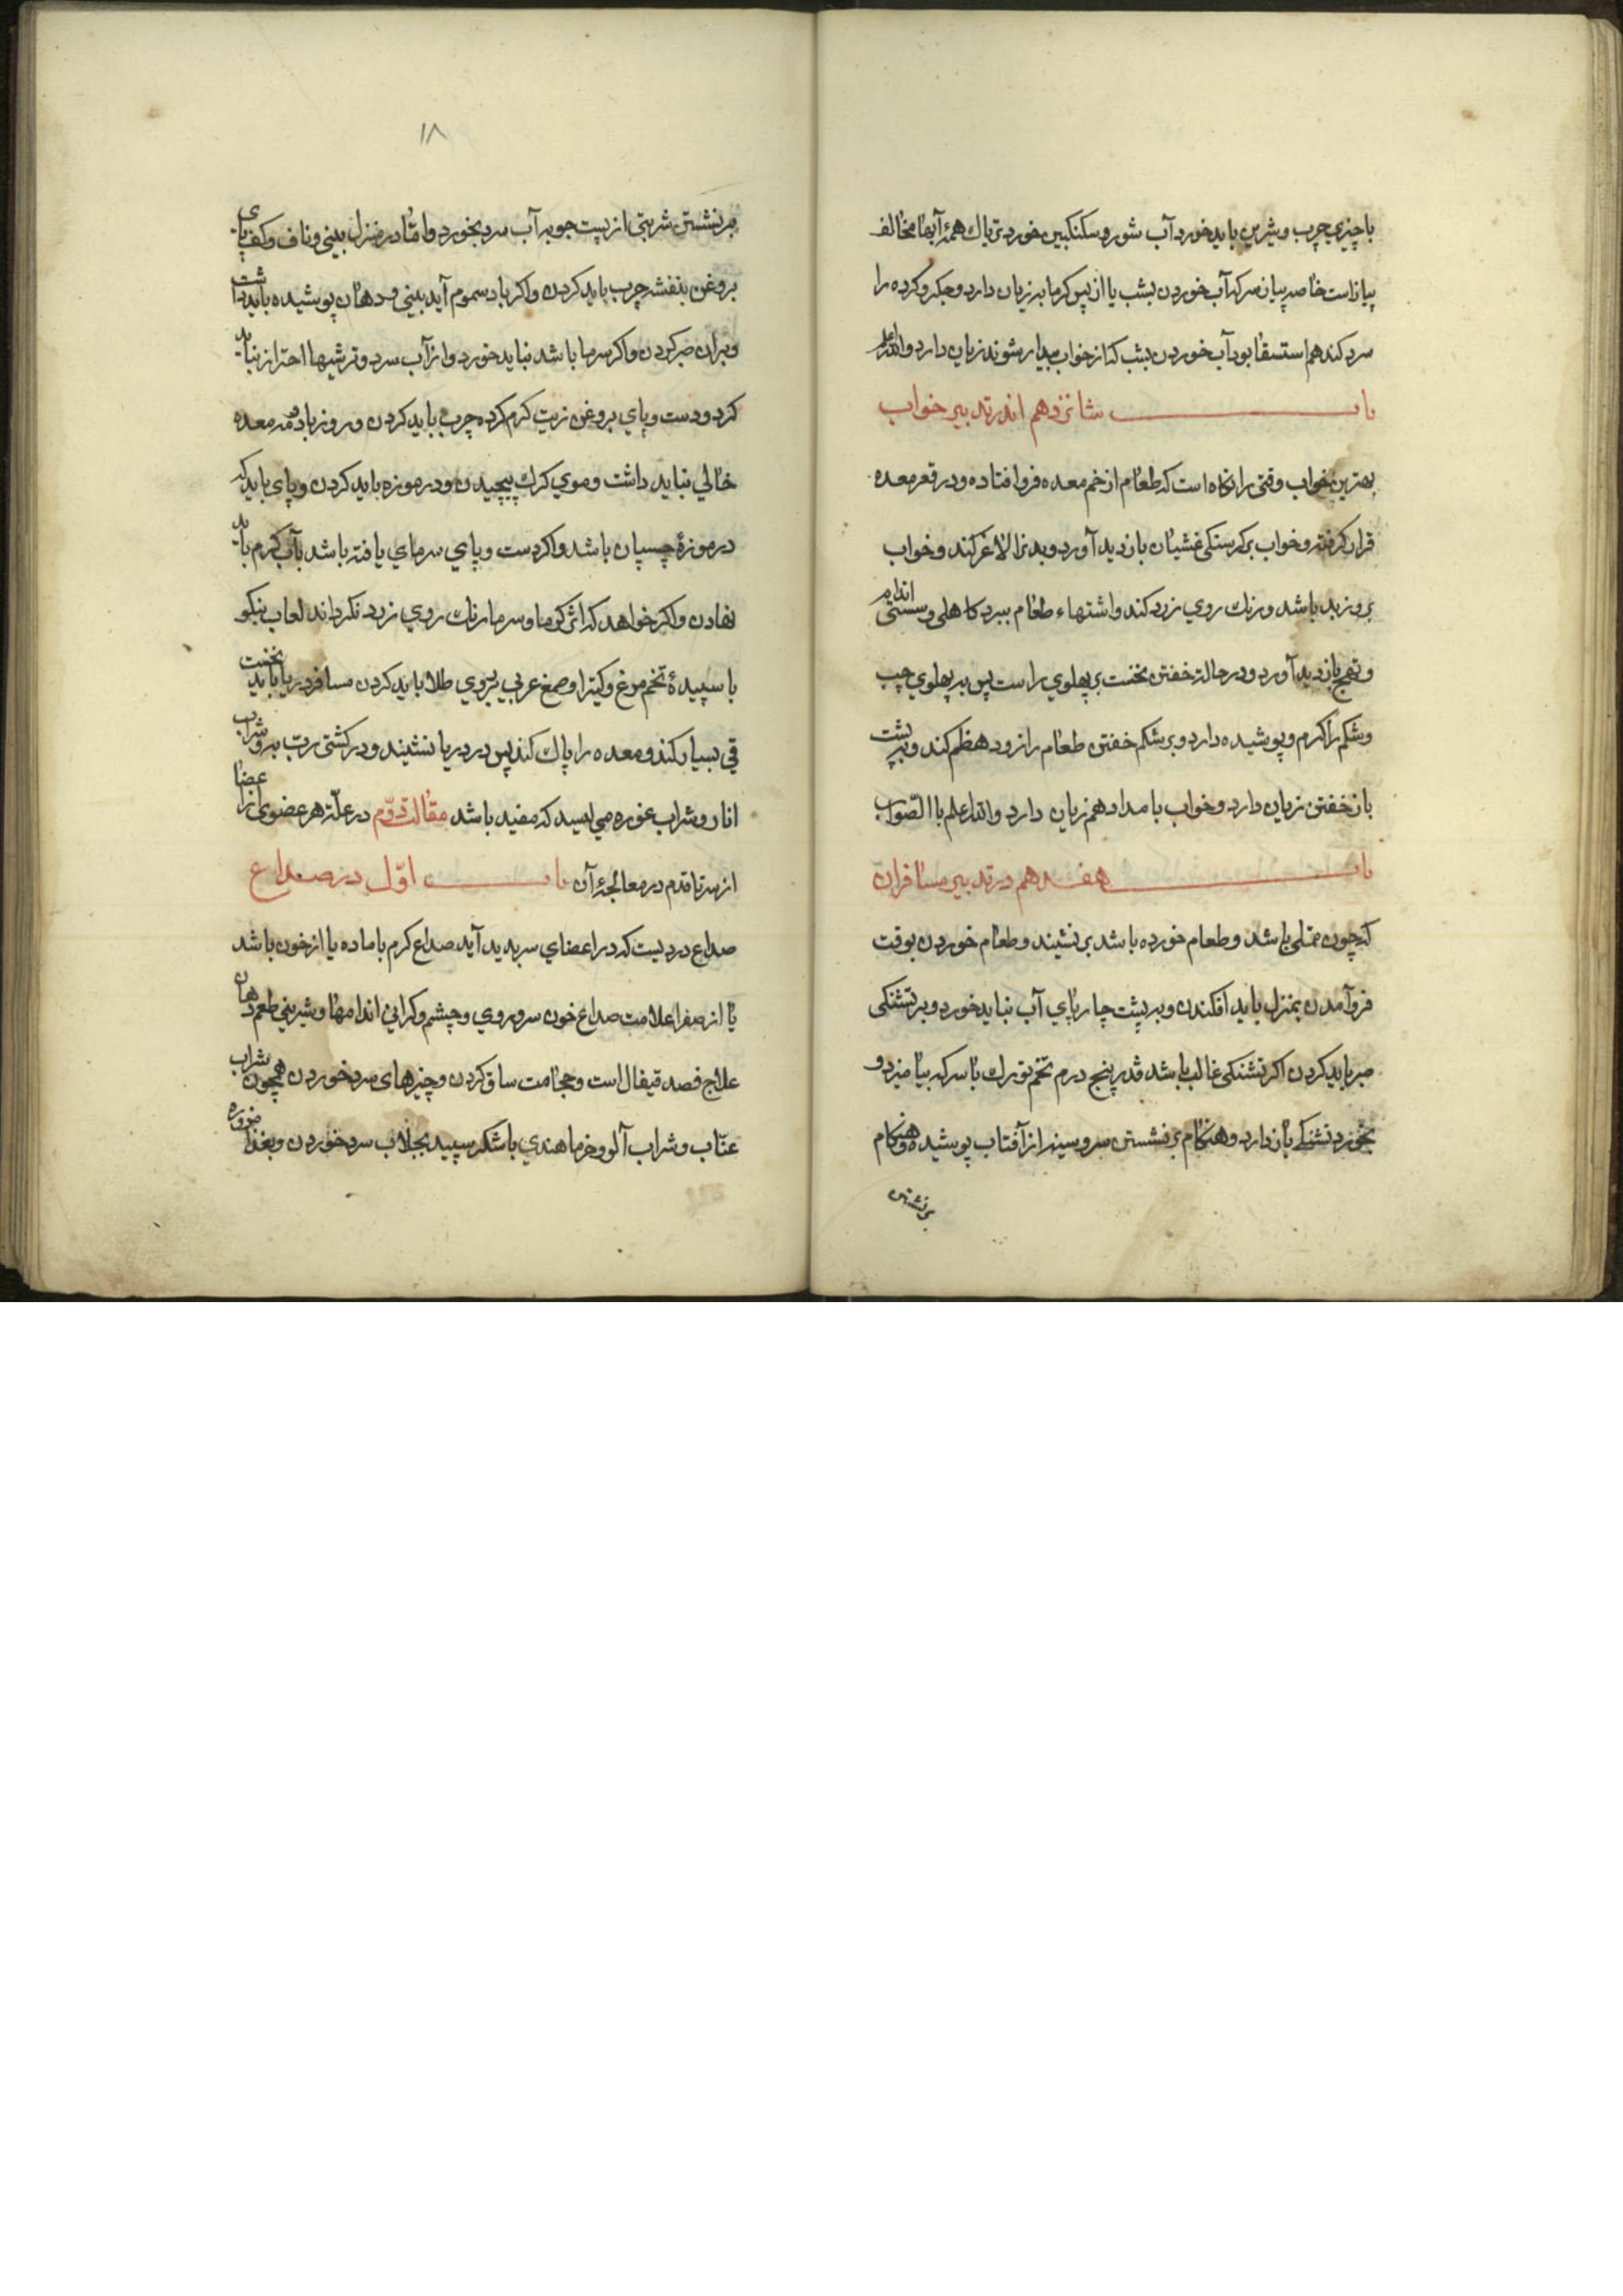 با چیزی چرب و شیرین باید خورد آب شور و سکنکبین خورد تریاك همهٔ آبها مخالف
پیازاست خاصه پیاز سرکه آب خوردن بشب یا از پس کرمابه زیان دارد و جکر و کرده را
سرد کند هم استسقا بود آب خوردن بشب که از خواب بیدار شوند زیان دارد والله اعلم
باب شانزدهم اندر تدبیر خواب
بهترین خواب وقتی را نکاه است که طعام از خم معده فرو افتاده و در قعر معده
قرار کرفته و خواب بر کرسنکی غشیان بازدید آورد و بدن را لاغر کند و خواب
بروز بد باشد و رنك روی زرد کند و اشتهاء طعام ببرد کاهلی و سستی اندام
و تهیج بازدید آورد و در حالت خفتن نخست بر پهلوی راست پس بر پهلوی چپ
و شکم را کرم و پوشیده دارد و بر شکم خفتن طعام را زود هظم کند و بر پشت
باز خفتن زیان دارد و خواب بامداد هم زیان دارد والله اعلم باالصّواب
باب هفدهم در تدبیر مسافران
که چون ممتلی باشد و طعام خورده باشد بر نشیند و طعام خوردن بوقت
فرو آمدن بمنزل باید افکندن و بر پشت چارپای آب نباید خورد و بر تشنکی
صبر باید کردن اکر تشنکی غالب باشد قدر پنج درم تخم تورك با سرکه بیامیزد و
بخورد تشنکی باز دارد و هنکام بر نشستن سر و سینه را از آفتاب پوشیده و هنکام
بر نشستن
۱۸
بر نشستن شربتی از پست جو بر آب سرد بخورد و امّا در منزل بینی و ناف و کف پای
بروغن بنفشه چرب باید کردن و اکر باد سموم آید بینی و دهان پوشیده باید داشت
و بران صبر کردن و اکر سرما باشد نباید خورد و از آب سرد و ترشیها احتراز بباید
کرد و دست و پای بروغن زیت کرم کرده چرب باید کردن و روز باد و دمه معده
خالی نباید داشت و موی کرك پیچیدن و در موزه باید کردن و پای باید که
در موزهٔ چسپان باشد و اکر دست و پای سرمای یافته باشد بآب کرم باید
نهادن و اکر خواهد که اثر کرما و سرما رنك روی زرد نکرداند لعاب بنکو
با سپیدهٔ تخم مرغ و کتیرا و صمغ عربی بر روی طلا باید کردن مسافر دریا باید نخست
قی بسیار کند و معده را پاك کند پس در دریا نشیند و در کشتی رب به و شراب
انار و شراب غوره می لیسد که مفید باشد مقالت دوّم در علّت هر عضوی از اعضا
از سر تا قدم در معالجهٔ آن باب اوّل در صداع
صداع دردیست که در اعضای سر بدید آید صداع کرم با ماده یا از خون باشد
یا از صفرا علامت صداع خون سر و روی و چشم و کرانی اندامها و شیرینی طعم دهان
علاج فصد قیفال است و حجامت ساق کردن و چیزهای سرد خوردن همچون شراب
عنّاب و شراب آلو و خرما هندی با شکر سپید بجلاب سرد خوردن و بغذا مزوره